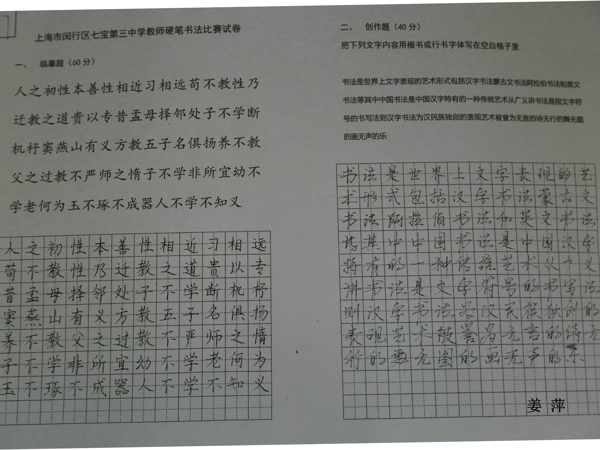 上海市闵行区七宝第三中学教师硬笔书法比赛试卷
一、 临摹题（60分）
人之初性本善性相近习相远苟不教性乃
迁教之道贵以专昔孟母择邻处子不学断
机杼窦燕山有义方教五子名俱扬养不教
父之过教不严师之惰子不学非所宜幼不
学老何为玉不琢不成器人不学不知义
人之初性本善性相近习相远
苟不教性乃迁教之道贵以专
昔孟母择邻处子不学断机杼
窦燕山有义方教五子名俱扬
养不教父之过教不严师之惰
子不学非所宜幼不学老何为
玉不琢不成器人不学不知义
二、 创作题（40分）
把下列文字内容用楷书或行书字体写在空白格子里
书法是世界上文字表现的艺术形式包括汉字书法蒙古文书法阿拉伯书法和英文
书法等其中中国书法是中国汉字特有的一种传统艺术从广义讲书法是指文字符
号的书写法则汉字书法为汉民族独创的表现艺术被誉为无言的诗无行的舞无图
的画无声的乐
书法是世界上文字表现的艺
术形式包括汉字书法蒙古文
书法阿拉伯书法和英文书法
等其中中国书法是中国汉字
特有的一种传统艺术从广义
讲书法是文字符号的书写法
则汉字书法为汉民族独创的
表现艺术被誉为无言的诗无
行的舞无图的画无声的乐
姜 萍